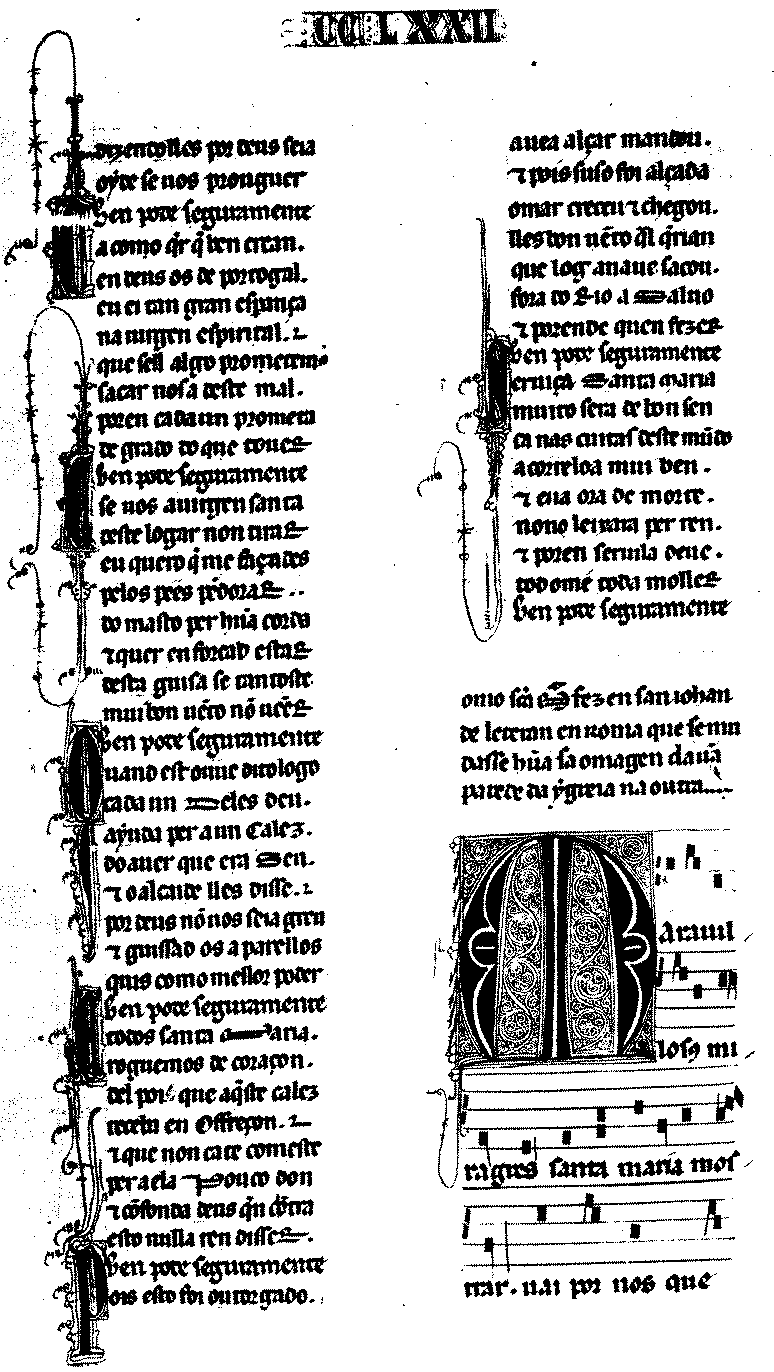 CCLXXII
dizendolles por deus seia
oyde se nos prouguer
ben pode seguramente
a como qr q̃ ben crean.
en deus os de portogal.
eu ei tan gran esperança
na uirgen espirital.
que sell algo prometermos
sacar nos a deste mal.
poren cada un prometa
de grado do que touer
ben pode seguramente
se nos a uirgen santa
deste logar non tirar
eu quero q̃ me façades
pelos pees pendorar
do masto per hũa corda
⁊ quer enforcad estar
desta guisa se tantoste
mui bon uẽto nõ uẽer
ben pode seguramente
Quand est ouue dito logo
cada un deles deu.
aynda per a un calez.
do auer que era seu.
⁊ o alcaide lles disse.
por deus nõ nos seia greu
⁊ guissad os aparellos
quis como mellor poder
ben pode seguramente
todos santa maria.
roguemos de coraçon.
del pois que aq̃ste calez
recebu en offreçon.
⁊ que non cate com este
per a ela pouco don
⁊ cõfonda deus q̃n cõtra
esto nulla ren disser.
ben pode seguramente
Pois esto foi outorgado.
a uea alçar mandou.
⁊ pois suso foi alçada
o mar creceu ⁊ chegou.
lles bon uẽto q̃l q̃rian
que log a naue sacou.
fora do Rio a saluo
⁊ porende quen fezer
ben pode seguramente
seruiça Santa Maria
muito sera de bon sen
ca nas cuitas deste mũdo
acorreloa mui ben.
⁊ ena ora de morte.
nono leixara per ren.
⁊ poren seruila deue.
tod ome toda moller
ben pode seguramente
Como sca m fez en san iohan
de leteran en roma que se mu
dasse hũa sa omagen da uã
parede da ygreia na outra
Marauil
losos mi
ragres santa maria mos
trar. uai por nos que